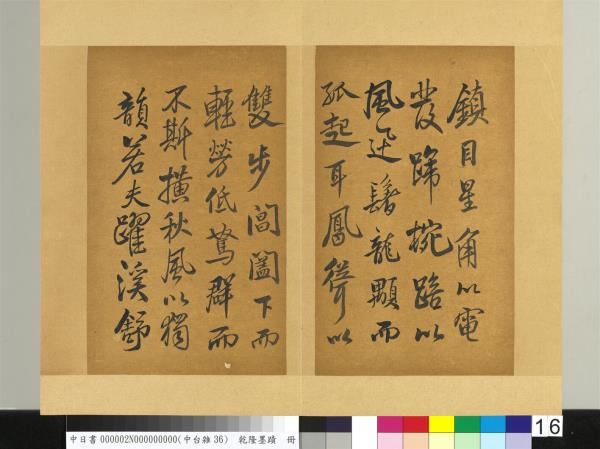 鎮目星角以電
發蹄椀踣以
風迕鬐龍顒而
孤起耳鳳聳以
雙步閶闔下而
輕勞低駑群而
不斯橫秋風以獨
韻若夫躍溪舒
中日書000002N000000000(中台雜36) 乾隆墨蹟 冊
16